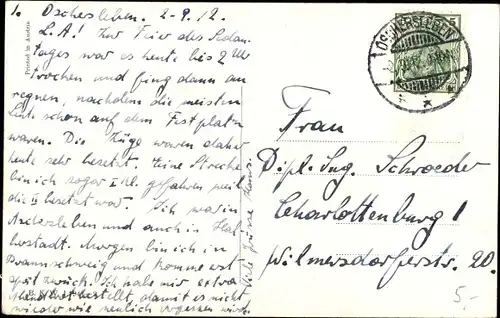 1. Oschersleben. 2-9.12.
L. A! Zur Feier des Sedan-
tages war es heute bis 2 Uhr
trocken und fing dann an
regnen, nachdem die meisten
Leute schon auf dem Festplatz
waren. Die Züge waren daher
heute sehr besetzt. Eine Strecke
bin ich sogar I Kl. gefahren weil
die II besetzt war. Ich war in
Aschersleben und auch in Hal-
berstadt. Morgen bin ich in
Braunschweig und komme erst
spät zurück. Ich habe mir extra
Abendbrot bestellt, damit es nicht
wieder wie neulich vergessen wird.
Viele Grüsse Hans.
Printed in Austria
OSCHERSLEBEN
5
Frau
Dipl. Ing. Schroeder
Charlottenburg 1
Wilmersdorferstr. 20.
5,-